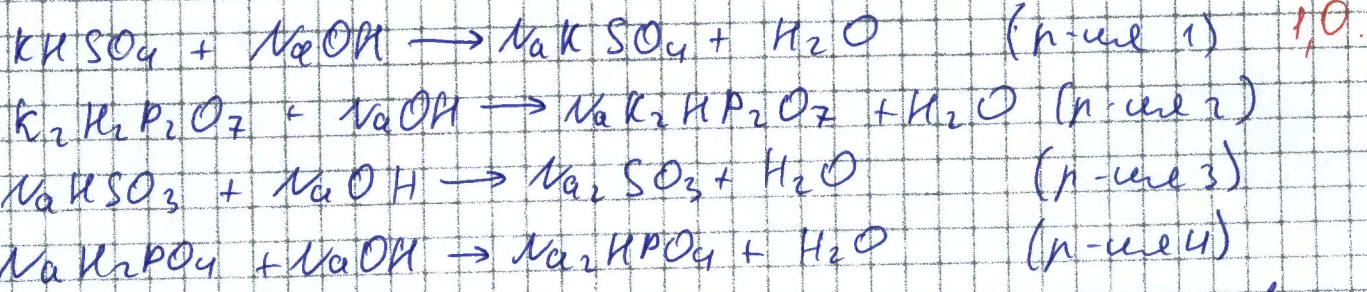 KHSO4 + NaOH → NaKSO4 + H2O (р-ция 1) 1,0.
K2H2P2O7 + NaOH → NaK2HP2O7 + H2O (р-ция 2)
NaHSO3 + NaOH → Na2SO3 + H2O (р-ция 3)
NaH2PO4 + NaOH → Na2HPO4 + H2O (р-ция 4)